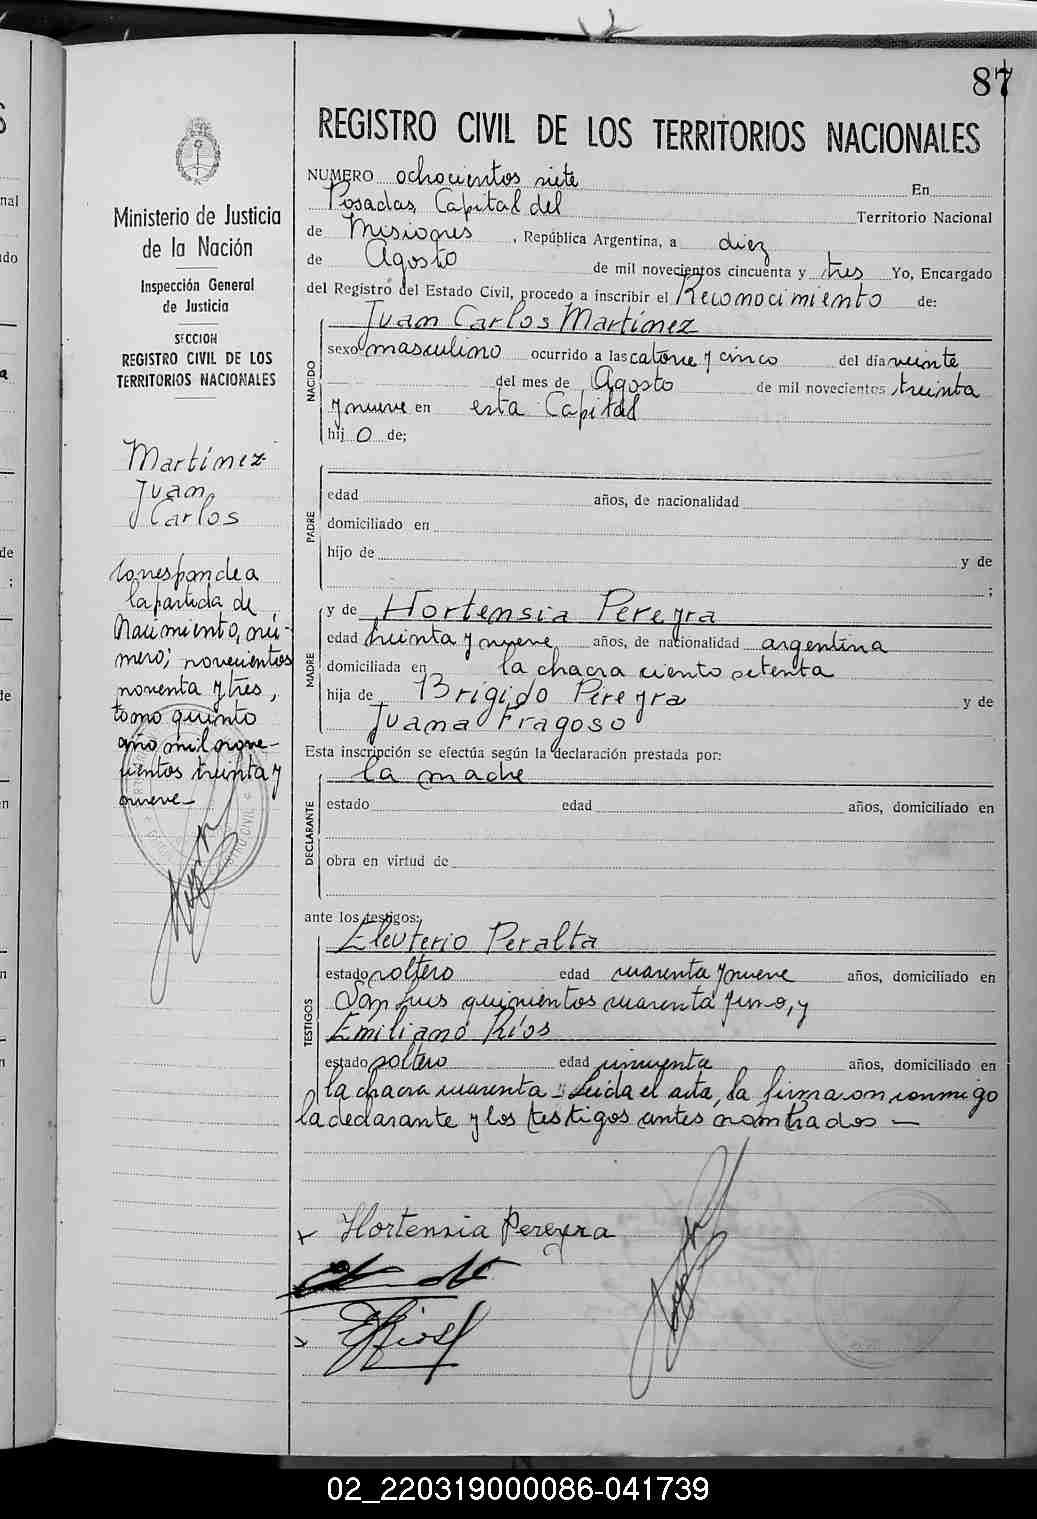 87
REGISTRO CIVIL DE LOS TERRITORIOS NACIONALES
NUMERO ochocientos siete En
Posadas, Capital del Territorio Nacional
de Misiones, República Argentina, a diez
de Agosto de mil novecientos cincuenta y tres Yo, Encargado
del Registro del Estado Civil, procedo a inscribir el Reconocimiento de:
Juan Carlos Martínez
NACIDO
sexo masculino ocurrido a las catorce y cinco del día veinte
del mes de Agosto de mil novecientos treinta
y nueve en esta Capital
hijo de;
PADRE
edad años, de nacionalidad
domiciliado en
hijo de y de
;
MADRE
y de Hortensia Pereyra
edad treinta y nueve años, de nacionalidad argentina
domiciliada en la chacra ciento setenta
hija de Brígido Pereyra y de
Juana Fragoso
Esta inscripción se efectúa según la declaración prestada por:
DECLARANTE
la madre
estado edad años, domiciliado en
obra en virtud de
ante los testigos:
TESTIGOS
Eleuterio Peralta
estado soltero edad cuarenta y nueve años, domiciliado en
San Luis quinientos cuarenta y uno, y
Emiliano Ríos
estado soltero edad cincuenta años, domiciliado en
la chacra cuarenta = Leida el acta, la firmaron conmigo
la declarante y los testigos antes nombrados —
Hortensia Pereyra
ERios
Ministerio de Justicia
de la Nación
Inspección General
de Justicia
SECCION
REGISTRO CIVIL DE LOS
TERRITORIOS NACIONALES
Martínez
Juan
Carlos
Corresponde a
la partida de
Nacimiento, nú-
mero; novecientos
noventa y tres,
tomo quinto
año mil nove-
cientos treinta y
nueve —
02_220319000086-041739